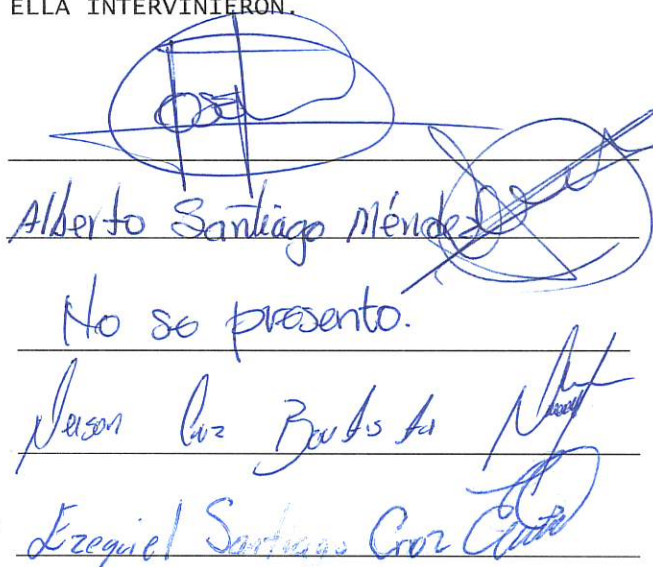 ELLA INTERVINIERON.
Alberto Santiago Méndez
No se presento.
Nerson Cruz Bautista
Ezequiel Santiago Cruz